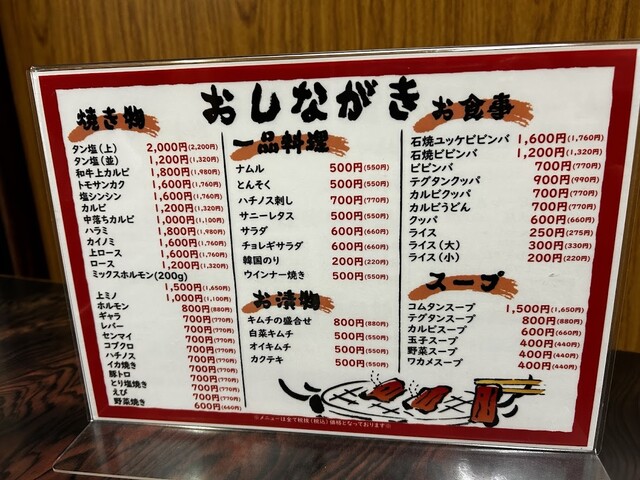 おしながき
焼き物
タン塩(上) 2,000円(2,200円)
タン塩(並) 1,200円(1,320円)
和牛上カルビ 1,800円(1,980円)
トモサンカク 1,600円(1,760円)
塩シンシン 1,600円(1,760円)
カルビ 1,200円(1,320円)
中落ちカルビ 1,000円(1,100円)
ハラミ 1,800円(1,980円)
カイノミ 1,600円(1,760円)
上ロース 1,600円(1,760円)
ロース 1,200円(1,320円)
ミックスホルモン(200g)
1,500円(1,650円)
上ミノ 1,000円(1,100円)
ホルモン 800円(880円)
ギャラ 700円(770円)
レバー 700円(770円)
センマイ 700円(770円)
コブクロ 700円(770円)
ハチノス 700円(770円)
イカ焼き 700円(770円)
豚トロ 700円(770円)
とり塩焼き 700円(770円)
えび 700円(770円)
野菜焼き 600円(660円)
一品料理
ナムル 500円(550円)
とんそく 500円(550円)
ハチノス刺し 700円(770円)
サニーレタス 500円(550円)
サラダ 600円(660円)
チョレギサラダ 600円(660円)
韓国のり 200円(220円)
ウインナー焼き 500円(550円)
お漬物
キムチの盛合せ 800円(880円)
白菜キムチ 500円(550円)
オイキムチ 500円(550円)
カクテキ 500円(550円)
お食事
石焼ユッケビビンバ 1,600円(1,760円)
石焼ビビンバ 1,200円(1,320円)
ビビンバ 700円(770円)
テグタンクッパ 900円(990円)
カルビクッパ 700円(770円)
カルビうどん 700円(770円)
クッパ 600円(660円)
ライス 250円(275円)
ライス(大) 300円(330円)
ライス(小) 200円(220円)
スープ
コムタンスープ 1,500円(1,650円)
テグタンスープ 800円(880円)
カルビスープ 600円(660円)
玉子スープ 400円(440円)
野菜スープ 400円(440円)
ワカメスープ 400円(440円)
※メニューは全て税抜(税込)価格となっております※